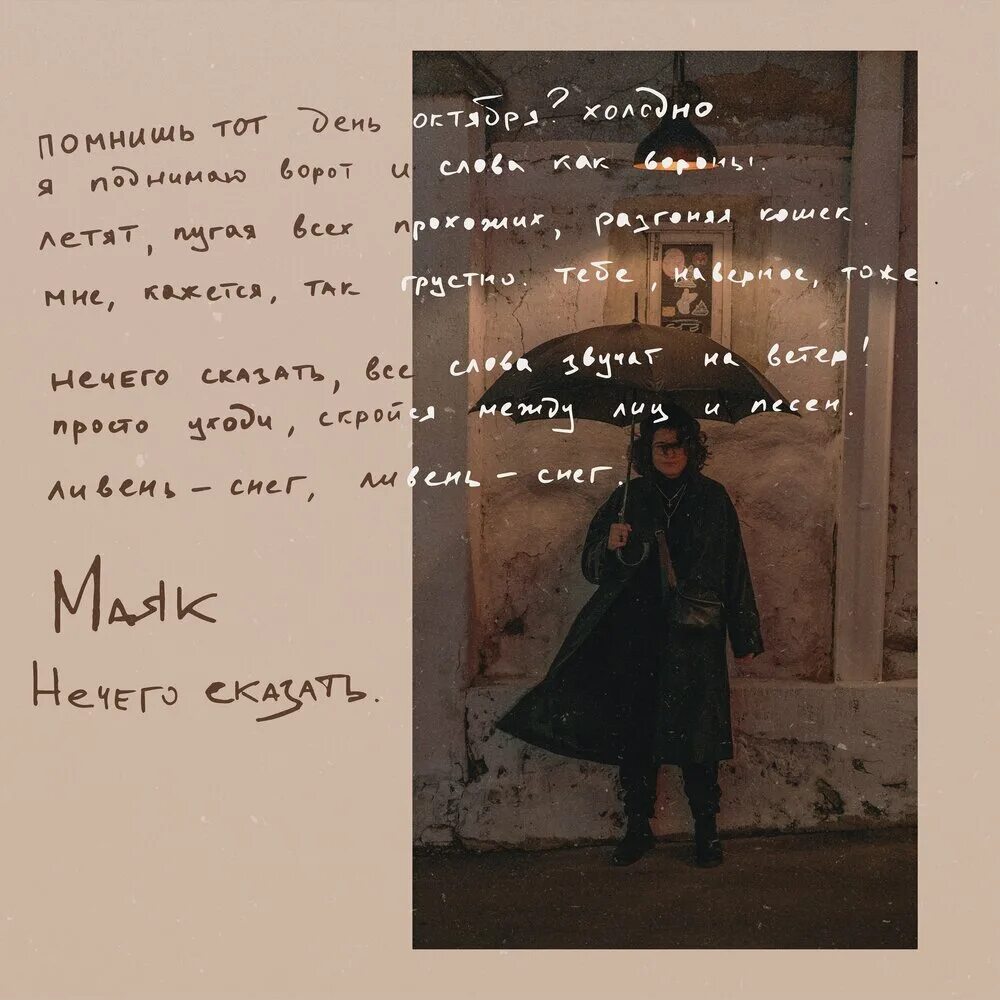 помнишь тот день октября? холодно
я поднимаю ворот и слова как вороны.
летят, пугая всех прохожих, разгоняя кошек.
мне, кажется, так грустно. тебе, наверное, тоже.
нечего сказать, все слова звучат на ветер!
просто уходи, скройся между лиц и песен.
ливень – снег, ливень – снег.
Маяк
Нечего сказать.